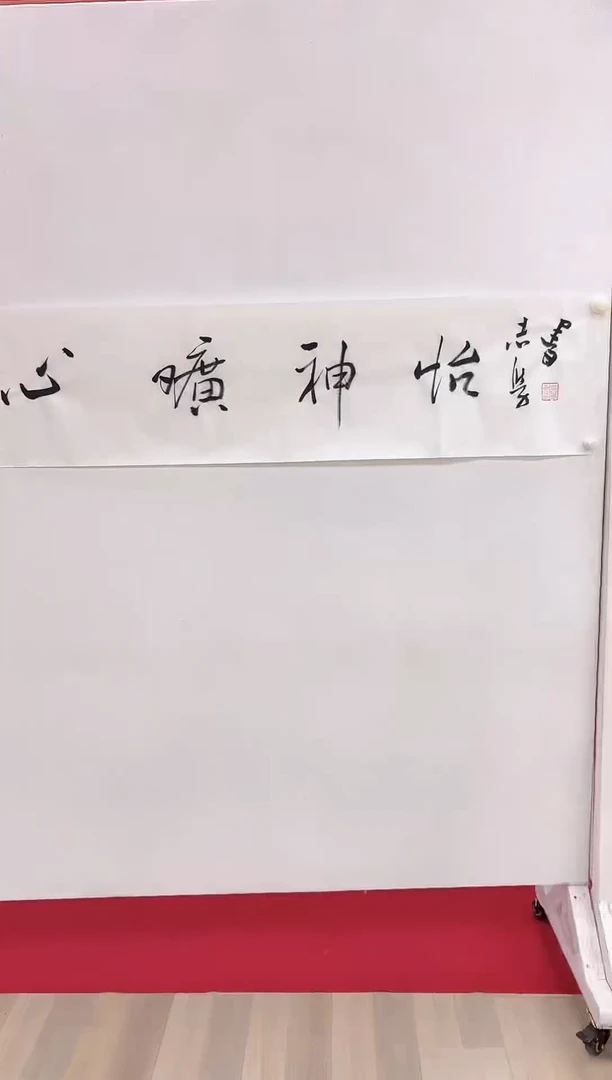 心曠神怡
志